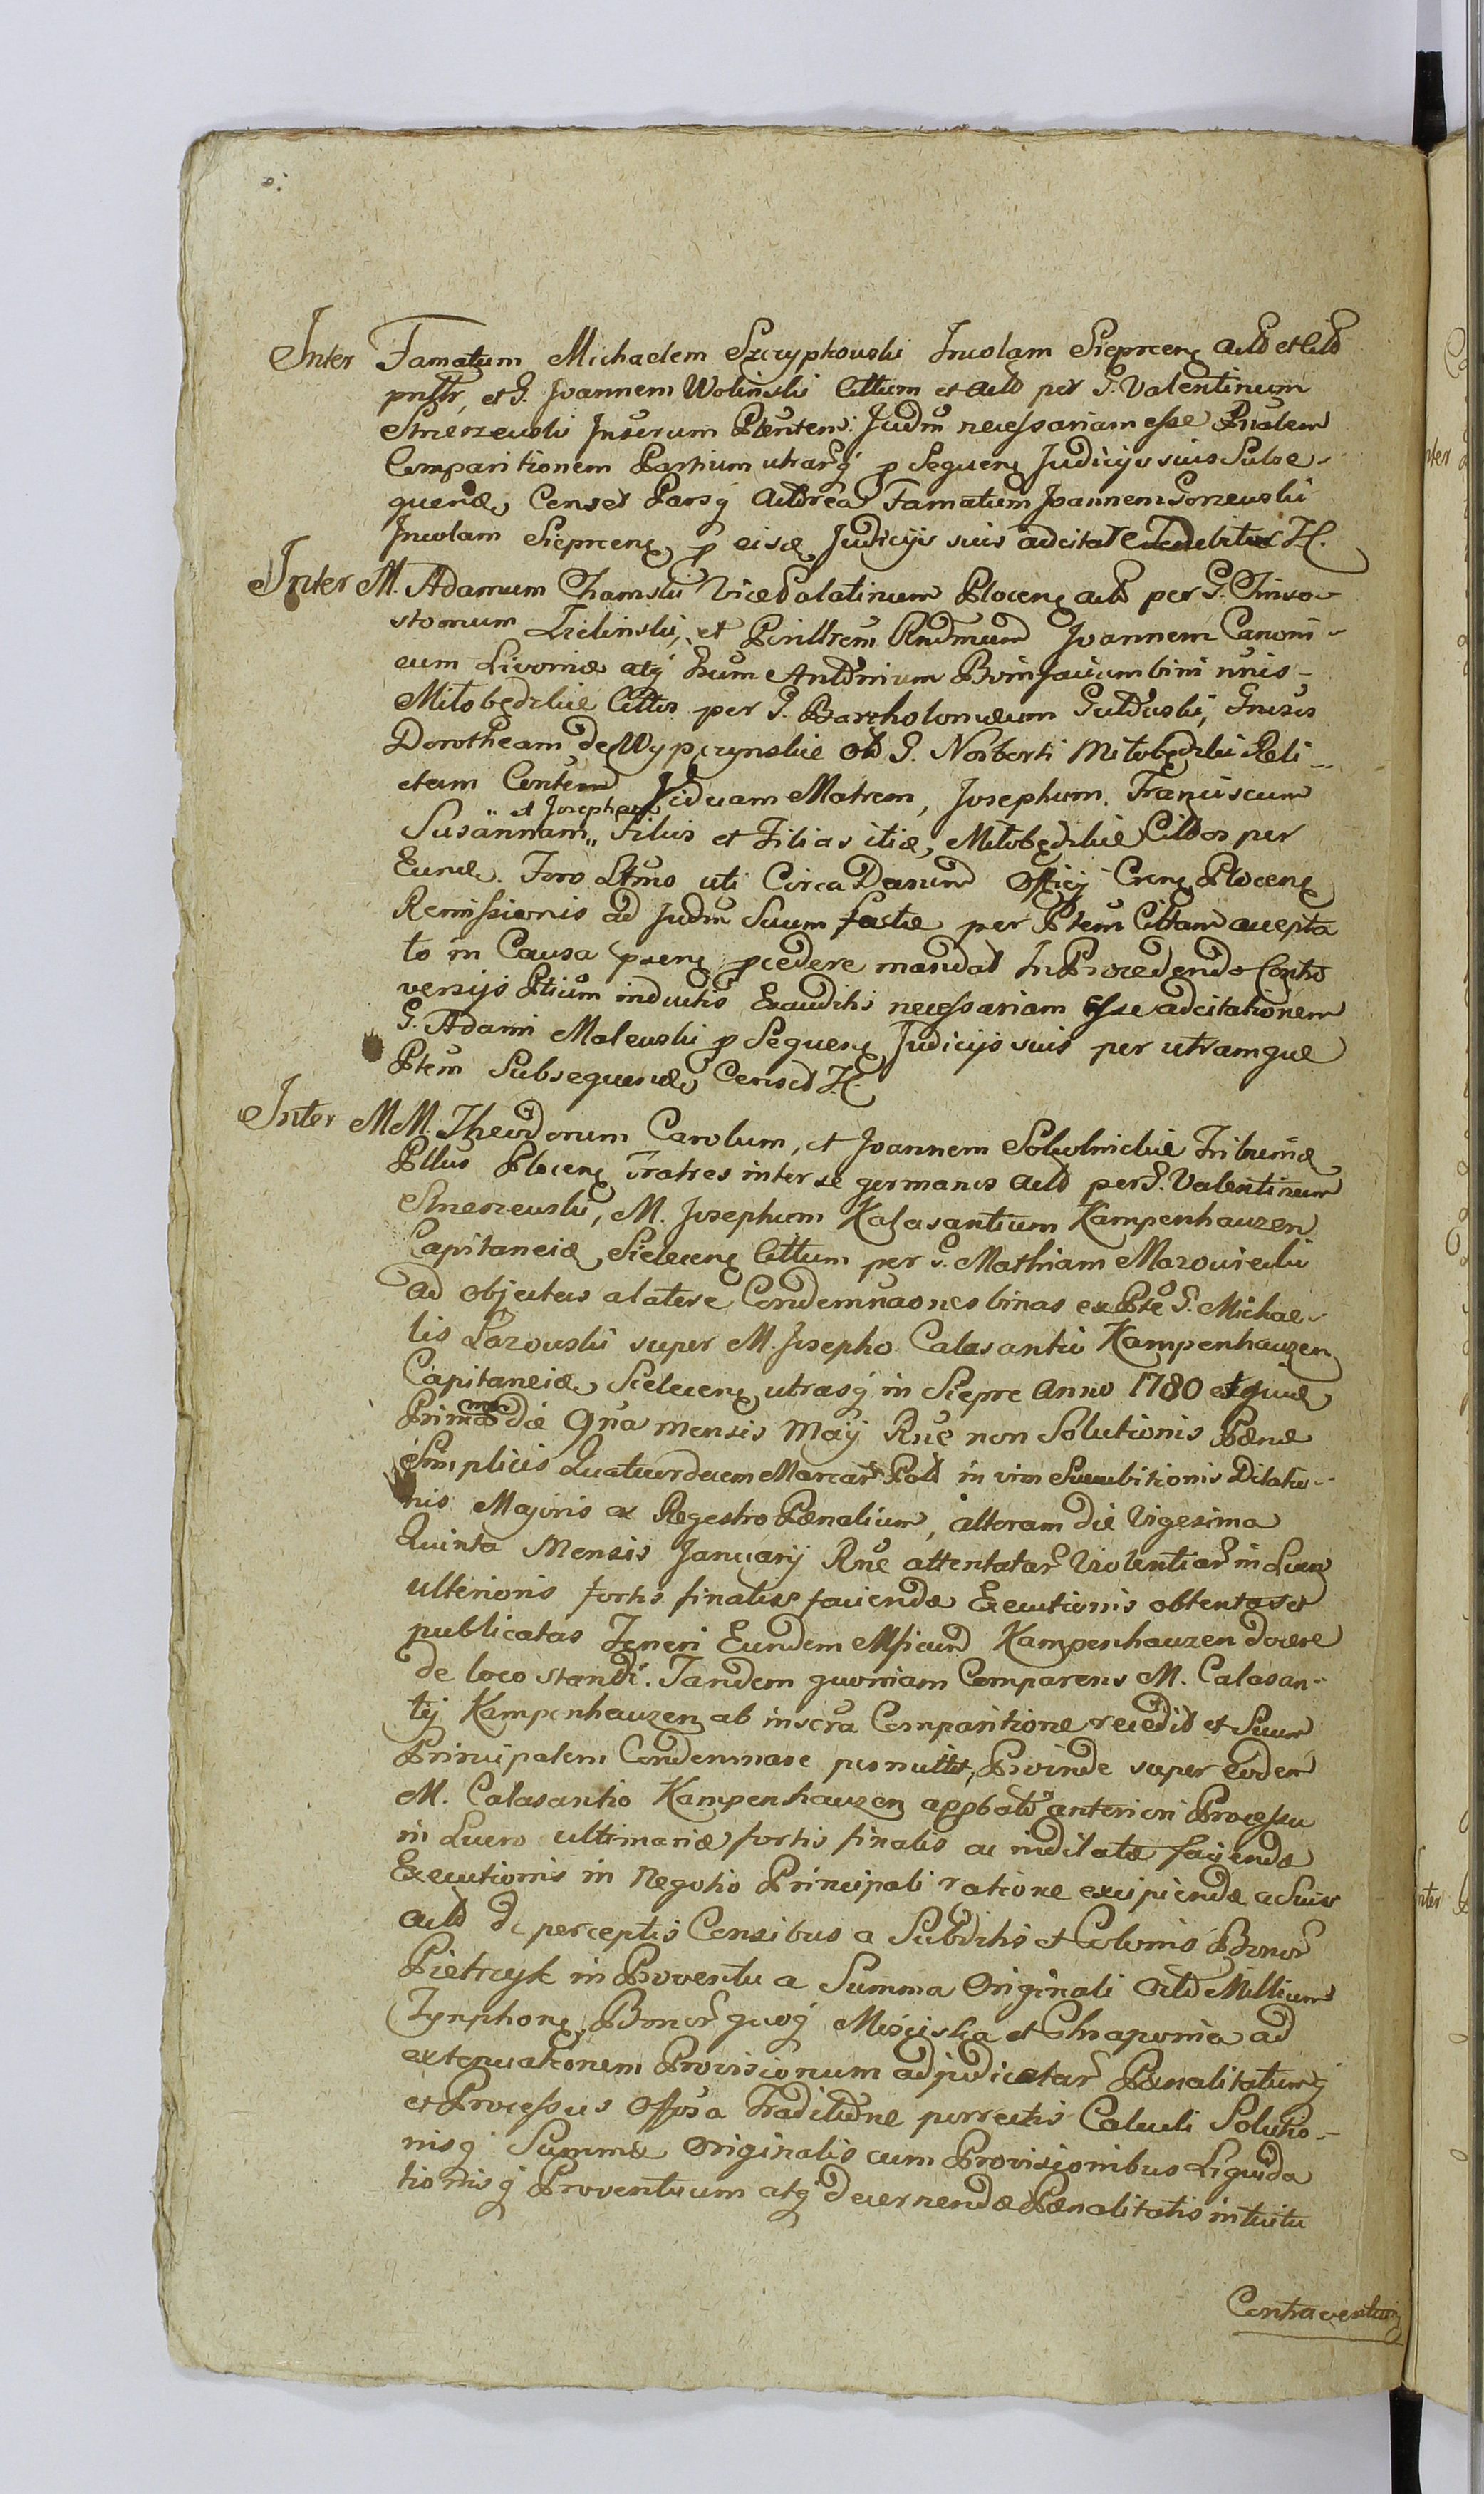 Inter Famatum Michaelem Szczypkowski Incolam Sieprceng Actd et Citd
pnstr, et G. Joannem Wolinski Cittum et Actd per G. Valentinum
Smerzewski Inserum Plentem: Judm necessariam esse Pnalem
Comparitionem Partium utrarq p Sequeng Judicys suis Subse-
quende, Censet Parsq Actorea Famatum Joannem Gorzewski
Incolam Siepreng p eisd Judicys suis adcitare tenebitur H.
Inter M. Adamum Chamski Vice Palatinum Ploceng actd per G. Chriso-
stomum Zielinski, et Perilltrem Rndmum Joannem Canoni-
cum Livoniæ atq Antonium Bonifacium bini nnis-
Miłobędzkie Cittos per G. Bartholomæum Gutowski, Gnises
Dorotheam de Wypczynskie olb G. Norberti Miłobędzki Reli-
ctam Contem Viduam Matrem, Josephum, Franciscum
Susannam „ et Josepham „ Filios et Filias itid, Miłobędzkie Cittos per
Eund. Foro Ltmo uti Circa Decretum Officy Creng Ploceng
Remissionis ad Judm Suum factæ per Ptem Cittam accepta
to in Causa pseng pcedere mandat In Procedendo Contro
versijs Ptium inductis Exauditis necessariam esse adcitationem
G. Adami Malewski p Sequeng Judicijs suis per utramque
Ptem Subsequende Censet H.
Inter MM. Theodorum Carolum, et Joannem Sokolnickie Tribunid
Pllus Ploceng Fratres inter se germanos Actd per G. Valentinum
Smerzewski, M. Josephum Kalasantium Kampenhauzen
Capitaneid Sieleceng Cittum per G. Mathiam Mazowiecki
Ad objectas a latere Condemnaones binas ex Pte G. Michae-
lis Łazowski super M. Josepho Calasantio Kampenhauzen
Capitaneid Sieleceng utrasq in Siepre Anno 1780 et quid
Primam die 9na mensis May Rne non Solutionis Pænæ
Simplicis Quatuordecem Marcar Pold in vim Succubitionis Dilatio-
nis Majoris ex Regestro Pænalium, alteram die Vigesima
Quinta Mensis January Rne attentatar Violentiar in Lucro
ulterioris fortis finalis faciendæ Executionis obtentas et
publicatas Teneri Eundem Mficum Kampenhauzen docere
de loco standi. Tandem quoniam Comparens M. Calasan-
tij Kampenhauzen ab inscra Comparitione recedit et Suum
Principalem Condemnare permittit, Proinde super eodem
M. Calasantio Kampenhauzen appbato anteriori Processu
in Lucro ultimariæ fortis finalis ac indilatæ faciendæ
Executionis in Negotio Principali ratione excipiendæ a Suis
Actd de perceptis Censibus a Subditis et Colonis Bonor
Pietrzyk in Proventu a Summa Originali Octo Millium
Tynphong, Bonor quoq Mościska et Chraponia ad
extenuationem Provisionum adjudicatar Pænalitatumq
et Processus Offosa Traditione porrectis Calculi Solutio-
nisq Summæ Originalis cum Provisionibus Liquida
tionisq Proventuum atq decernendæ Pænalitatis intuitu
Contraventionis